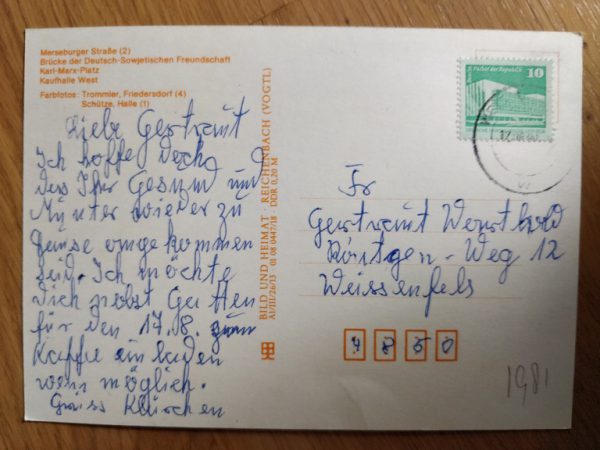 Merseburger Straße (2)
Brücke der Deutsch-Sowjetischen Freundschaft
Karl-Marx-Platz
Kaufhalle West
Farbfotos: Trommler, Friedersdorf (4)
Schütze, Halle (1)
Liebe Gertraut
Ich hoffe doch
das Ihr Gesund und
Munter wieder zu
Hause angekommen
seid. Ich möchte
Dich nebst Gatten
für den 17.8. zum
Kaffe einladen
wenn möglich.
Gruss Klärchen
BILD UND HEIMAT REICHENBACH (VOGTL)
A1/III/26/13 01 08 0447/18 DDR 0,20 M
Palast der Republik 10
DDR
Fr
Gertraut
Röntgen-Weg 12
Weissenfels
4850
1981